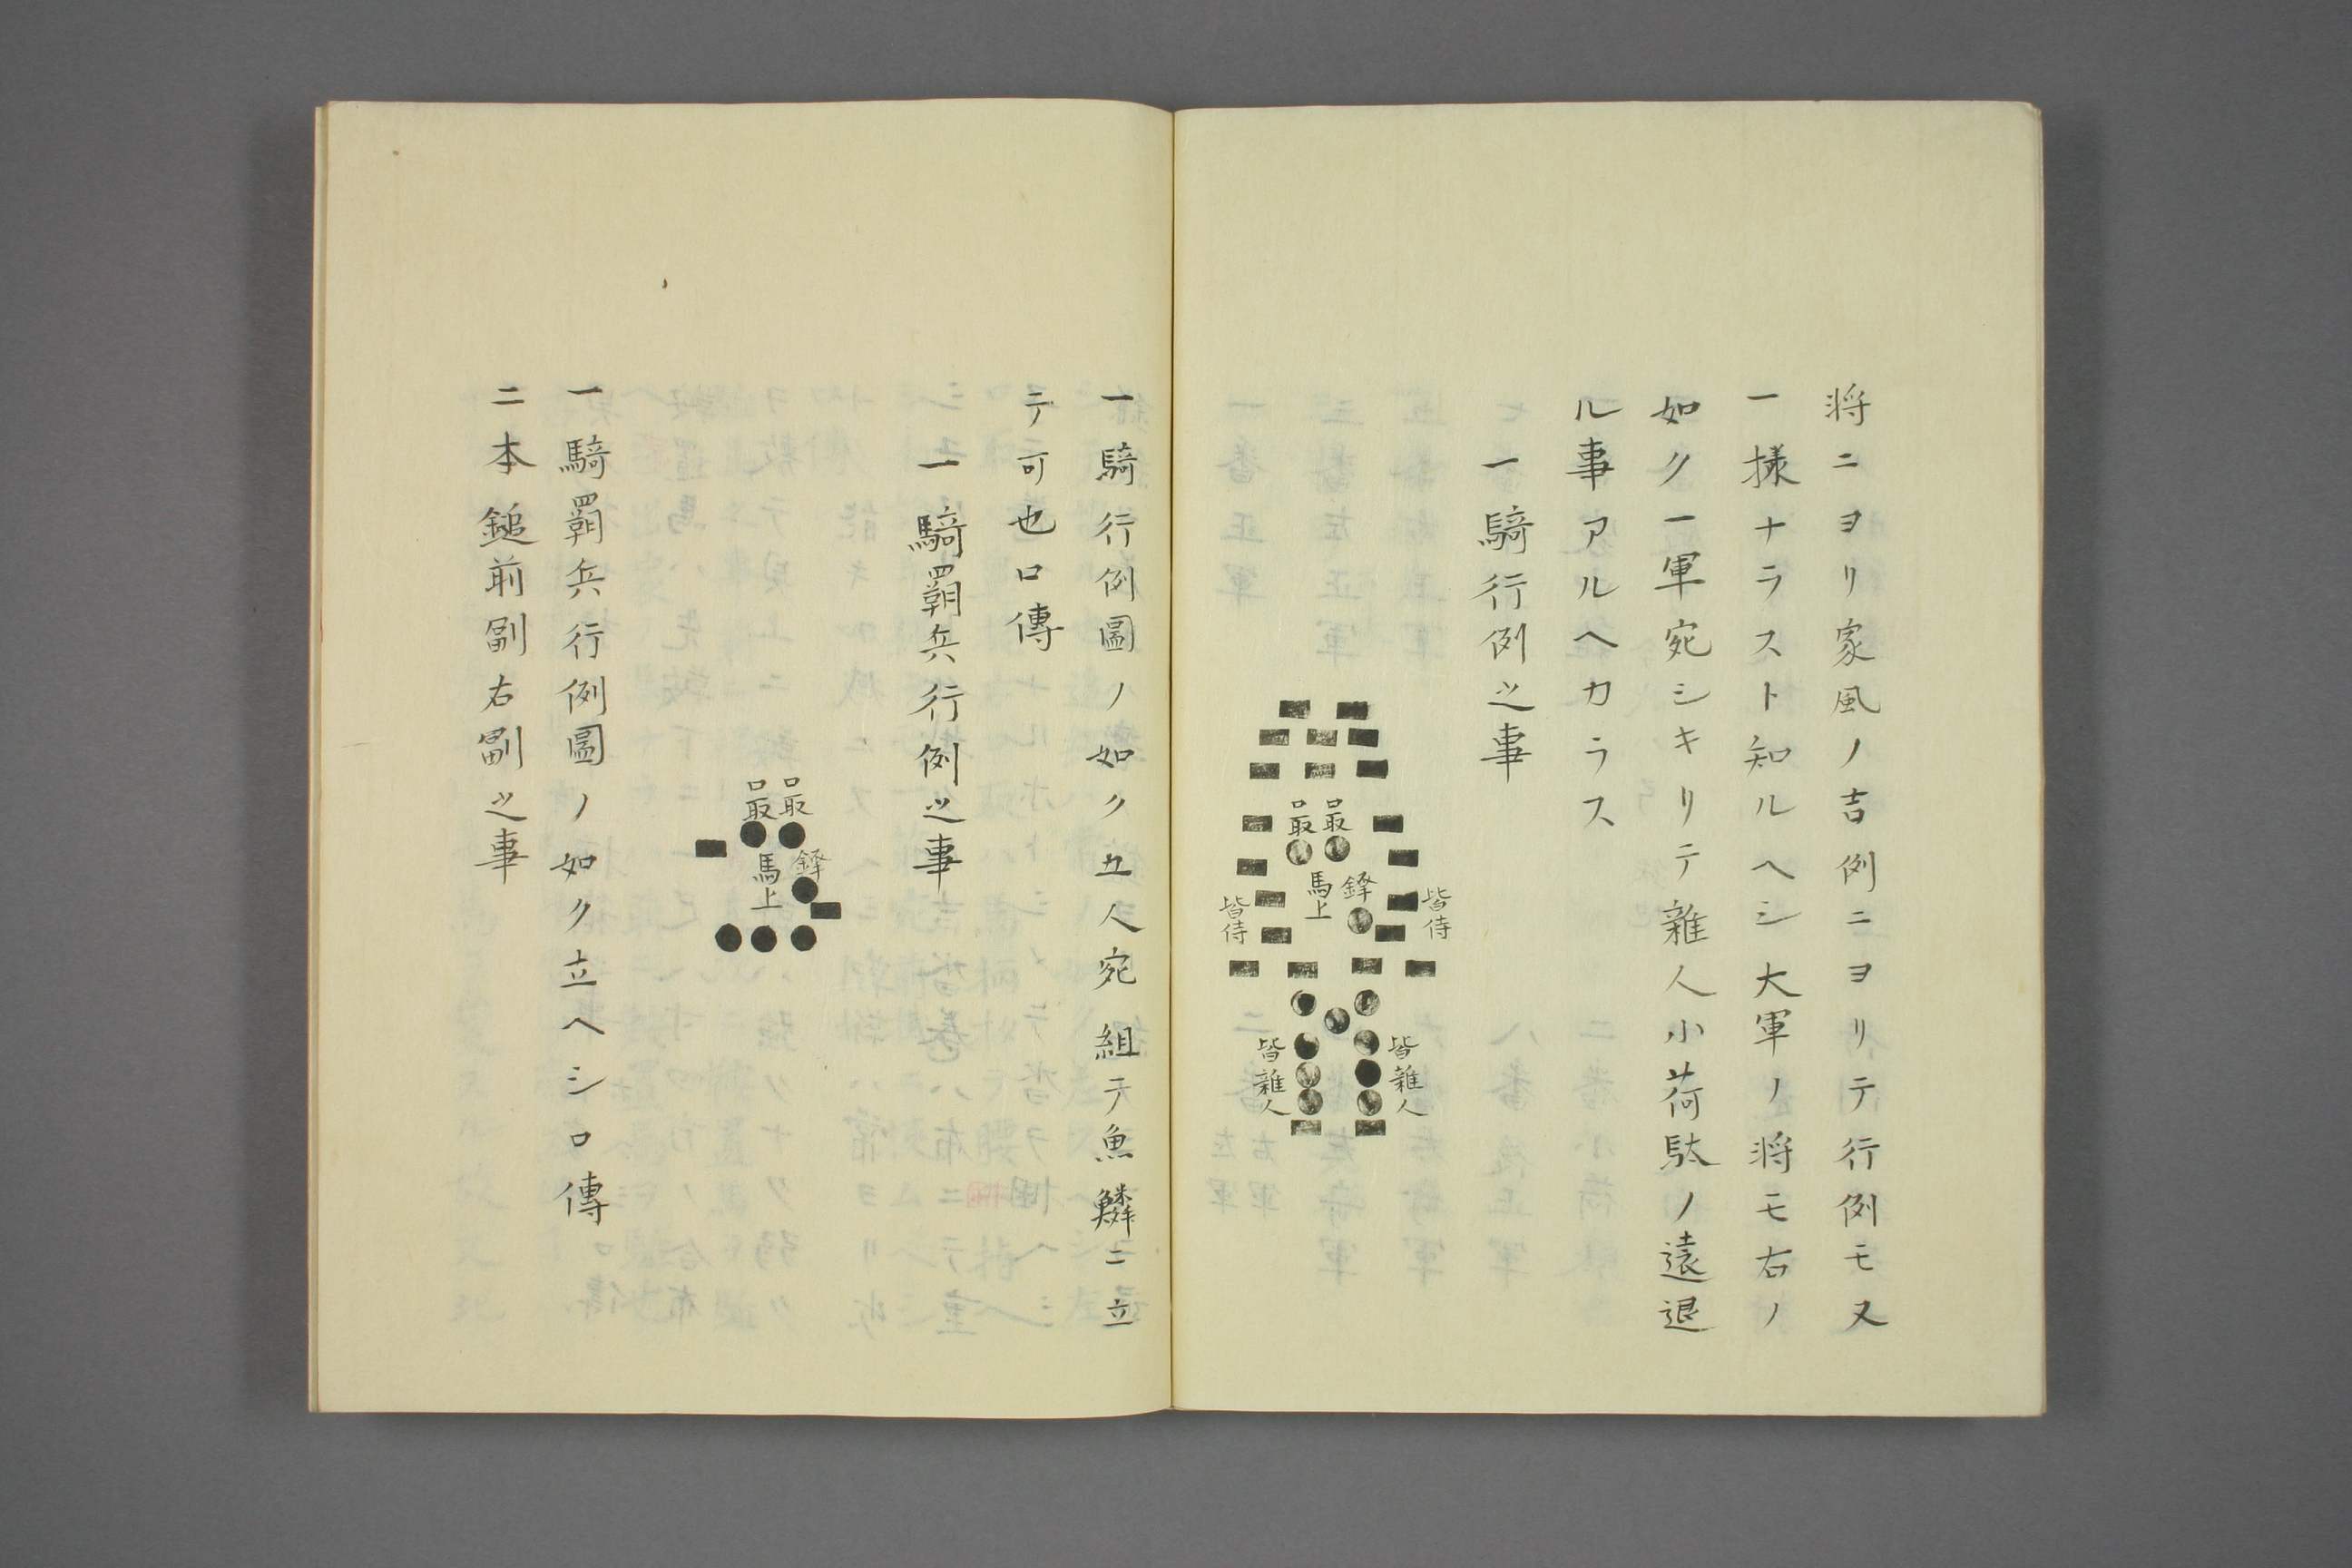 将ニヨリ家風ノ吉例ニヨリテ行例モ又
一様ナラスト知ルヘシ大軍ノ将モ右ノ
如ク一軍宛シキリテ雑人小荷駄ノ遠退
ル事アルヘカラス
一騎行例之事
口取
口取
馬上
鋒
皆侍
皆侍
皆雑人
皆雑人
一騎行例圖ノ如ク五人宛組テ魚鱗ニ立
テ可也口傳
一騎羈兵行例之事
口取
口取
鋒
馬上
一騎羈兵行例圖ノ如ク立ヘシ口傳
二本鎚前副右副之事